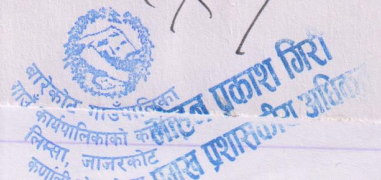 बारेकोट गाउँपालिका
गाउँ कार्यपालिकाको
लिम्सा, जाजरकोट
कर्णाली
प्रकाश गिरी
प्रमुख प्रशासकीय अधिकृत